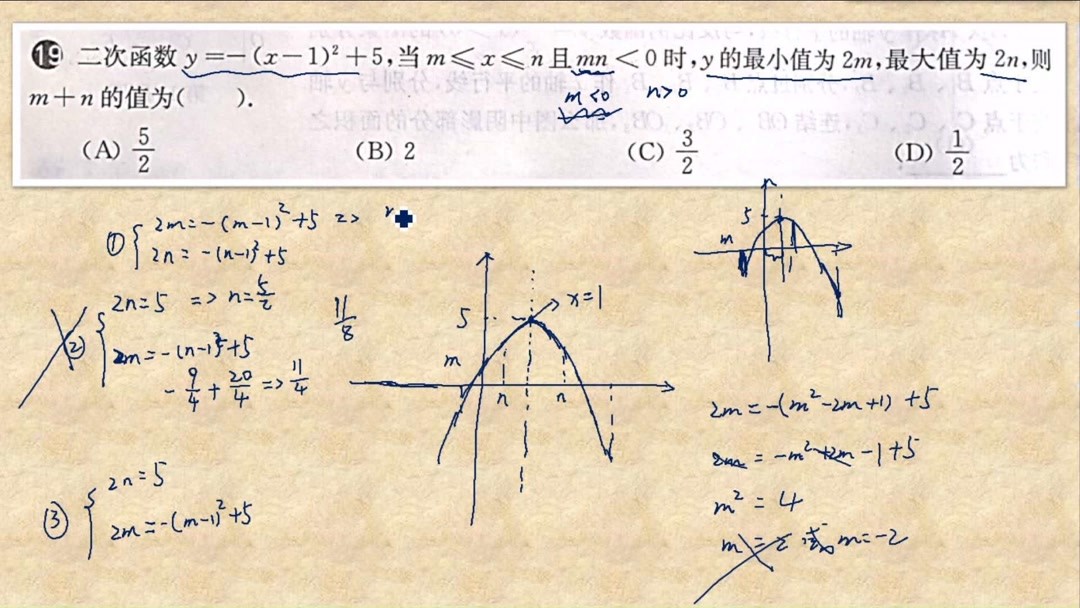 19 二次函数 y=-(x-1)²+5,当 m≤x≤n 且 mn<0 时,y 的最小值为 2m,最大值为 2n,则
m+n 的值为(    ).
m<0 n>0
(A) 5/2 (B) 2 (C) 3/2 (D) 1/2
① { 2m=-(m-1)²+5 =>
2n=-(n-1)²+5
2n=5 => n=5/2
② { 2m=-(n-1)²+5
-9/4+20/4 => 11/4
11/8
③ { 2n=5
2m=-(m-1)²+5
5 x=1
m n n
5
m 1
2m=-(m²-2m+1)+5
2m=-m²+2m-1+5
m²=4
m=2 或 m=-2